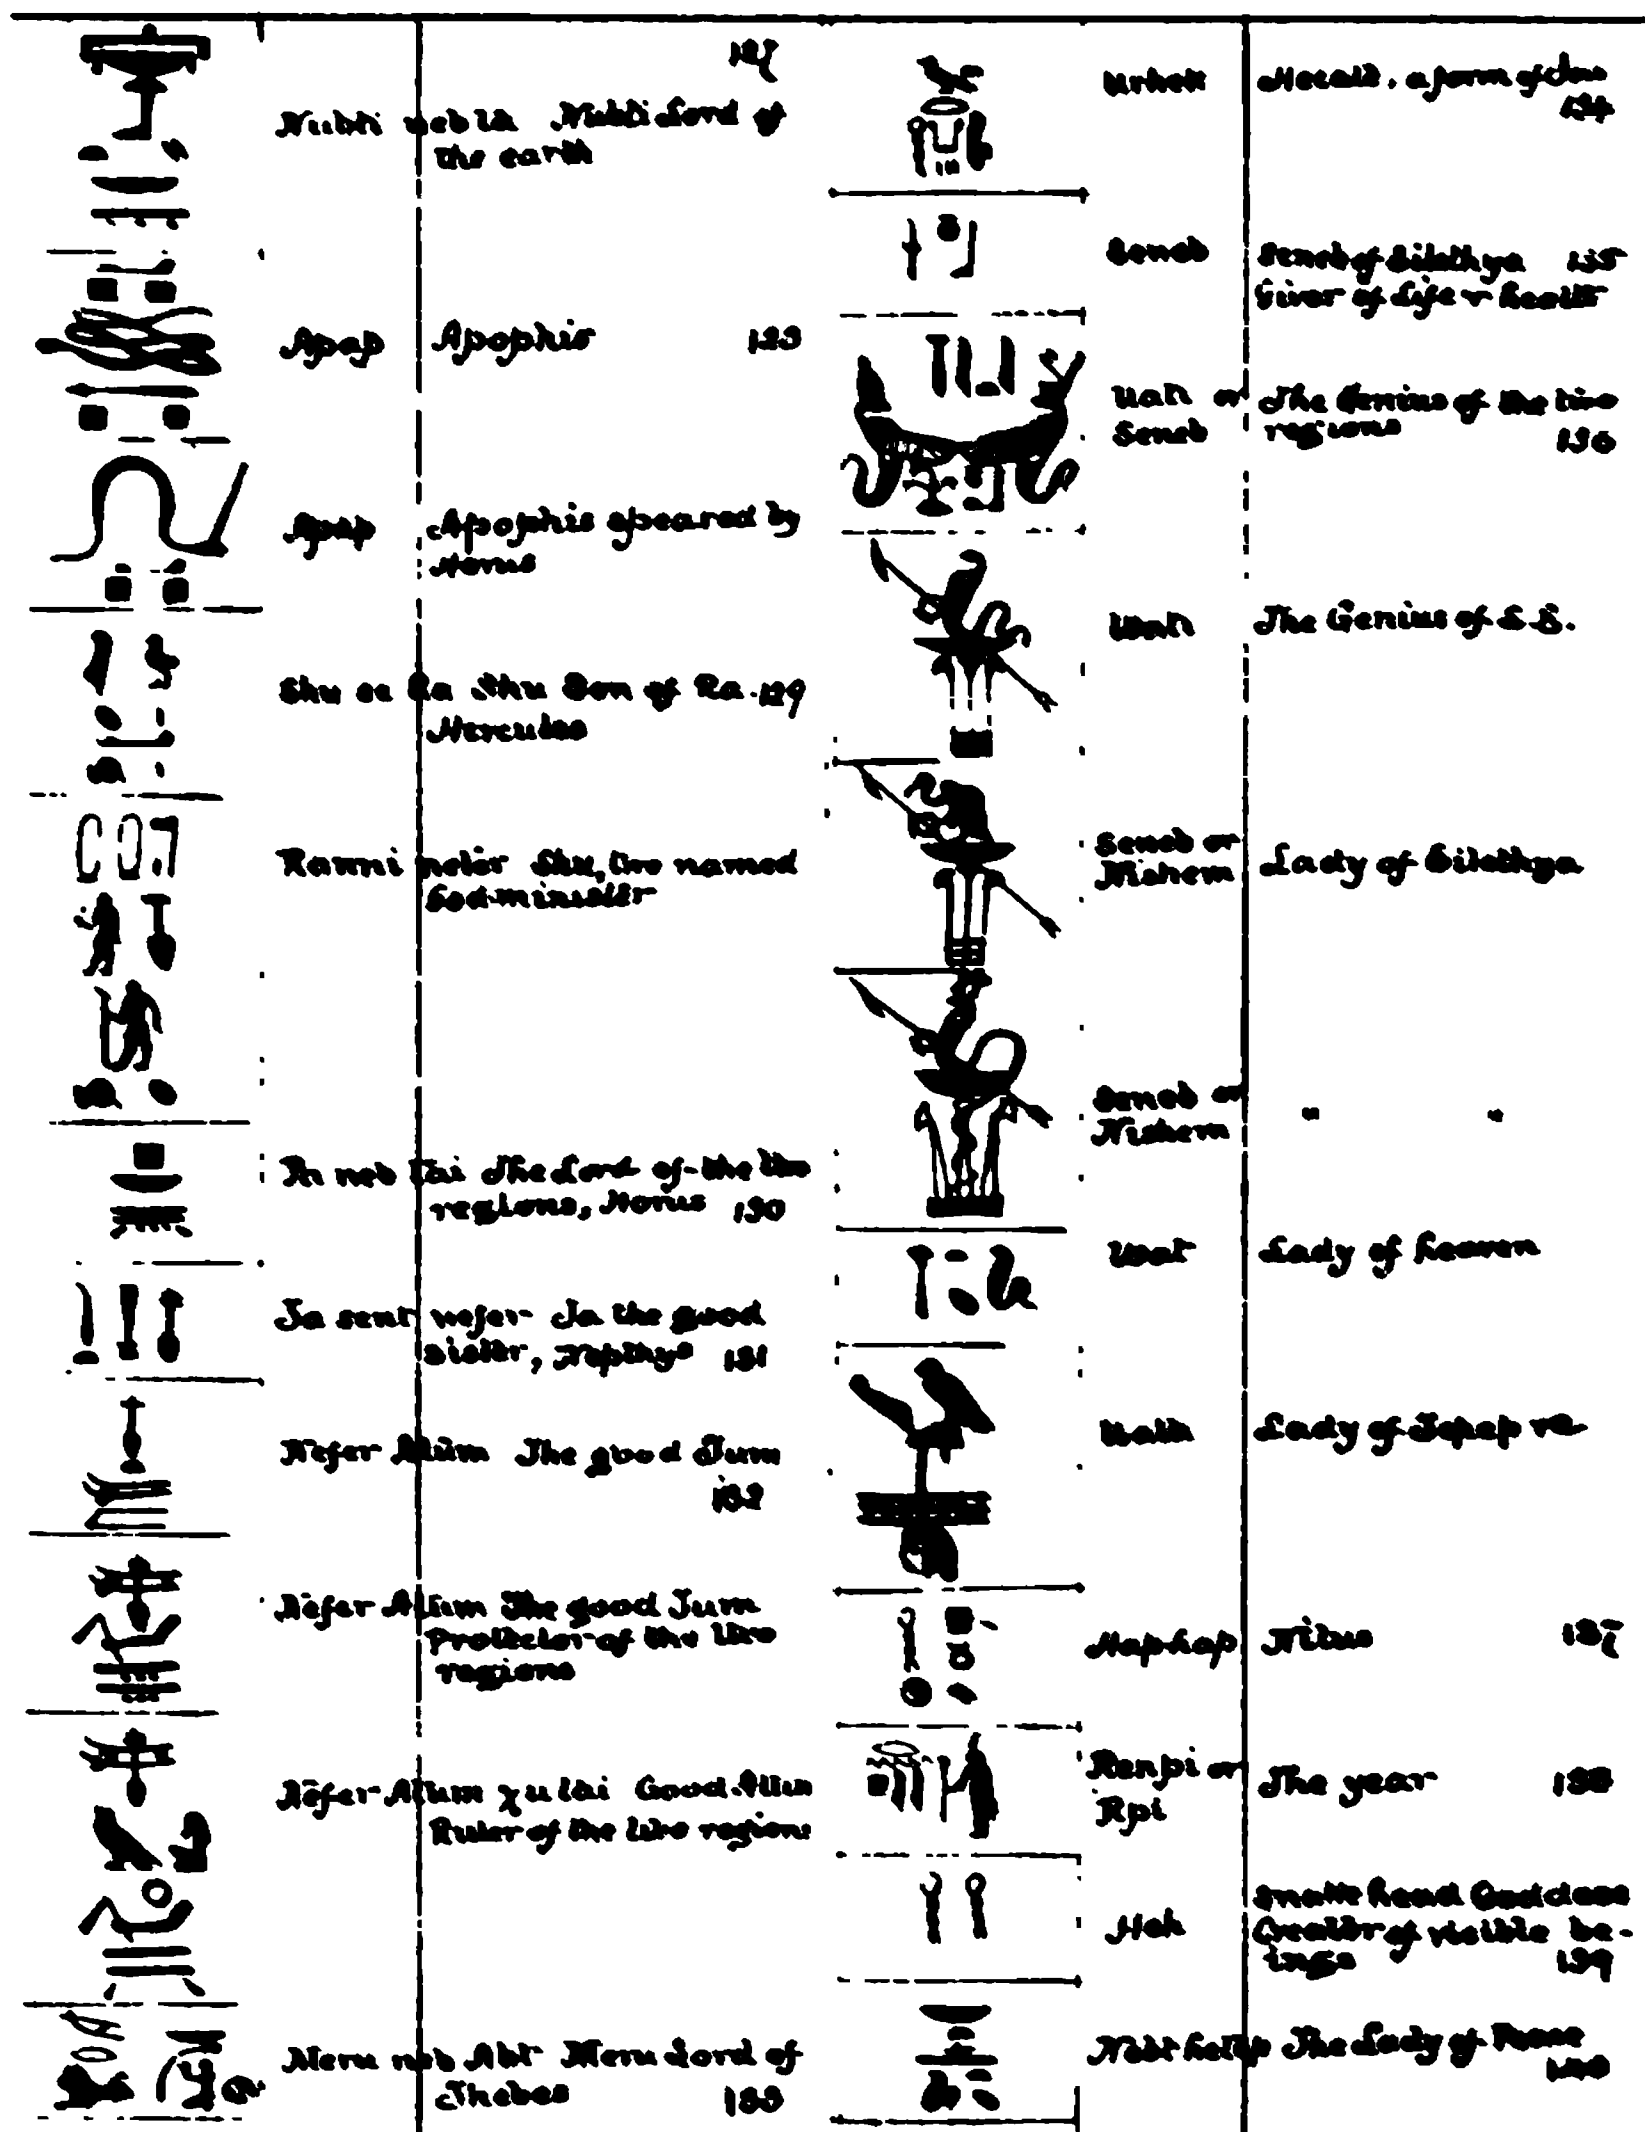 127
Nubti neb ta Nubti Lord of
the earth
Apap Apophis 128
Apap Apophis speared by
Horus
Shu se Ra Shu Son of Ra. 129
Hercules
Ranni neter Shu, two named
God minister
neb tai The Lord of the two
regions, Horus 130
Ja sent nefer Ja the good
sister, Nepthys 131
Nefer Atum The good Tum
132
Nefer Atum The good Tum
Protector of the two
regions
Nefer Atum χu tai Good Atum
Ruler of the two regions
Meru neb Abt Meru Lord of
Thebes 133
Urhek Hecate, a form of
134
Seneb Seneb of Eilethya 135
Giver of Life & health
Uati or The Genius of the two
Seneb regions 136
Uati The Genius of L. E.
Seneb or
Nishem Lady of Eilethya
Seneb or " "
Nishem
Uat Lady of heaven
Uati Lady of Tepep re
Haphap Nilus 137
Renpi or The year 138
Rpi
Heh Snake head Goddess
Creator of visible be-
ings 139
Nebt hetep The Lady of Peace
140